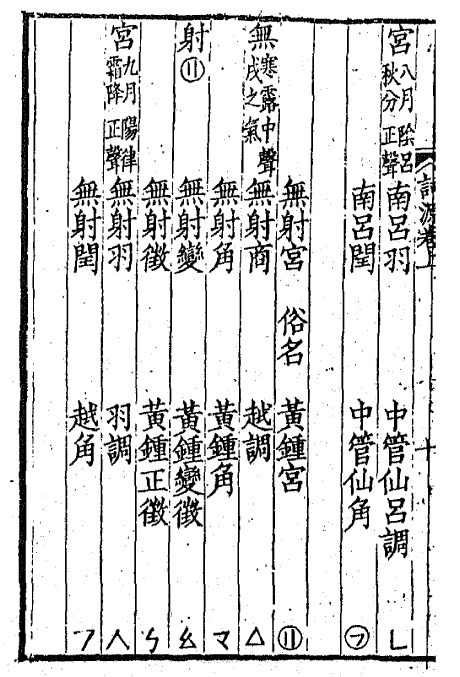 詞源卷上 十
宮 八月 陰呂 秋分 正聲 南呂羽 中管仙呂調 ㄴ
南呂閏 中管仙角 ㋫
無射宮 俗名 黃鍾宮 ⑪
無 寒露中聲 戌之氣 無射商 越調 △
無射角 黃鍾角 マ
射⑪ 無射變 黃鍾變徵 ㄠ
無射徵 黃鍾正徵 ㄣ
宮 九月 陽律 霜降 正聲 無射羽 羽調 人
無射閏 越角 フ